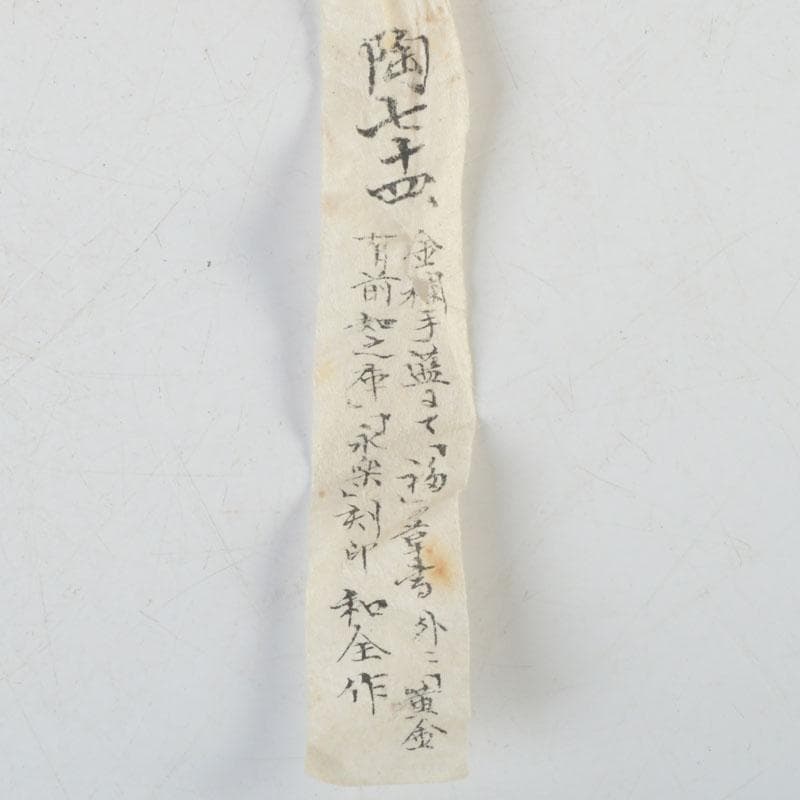 陶七十四、
金襴手藍にて「福」ノ草書 外ニ「黄金
前如之布」「永楽」刻印 和全作